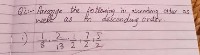 Q1:- Arrange the following in ascending order as
well as in descending order.
i) 1/8, 2/13, 1/2, 7/2, 5/2